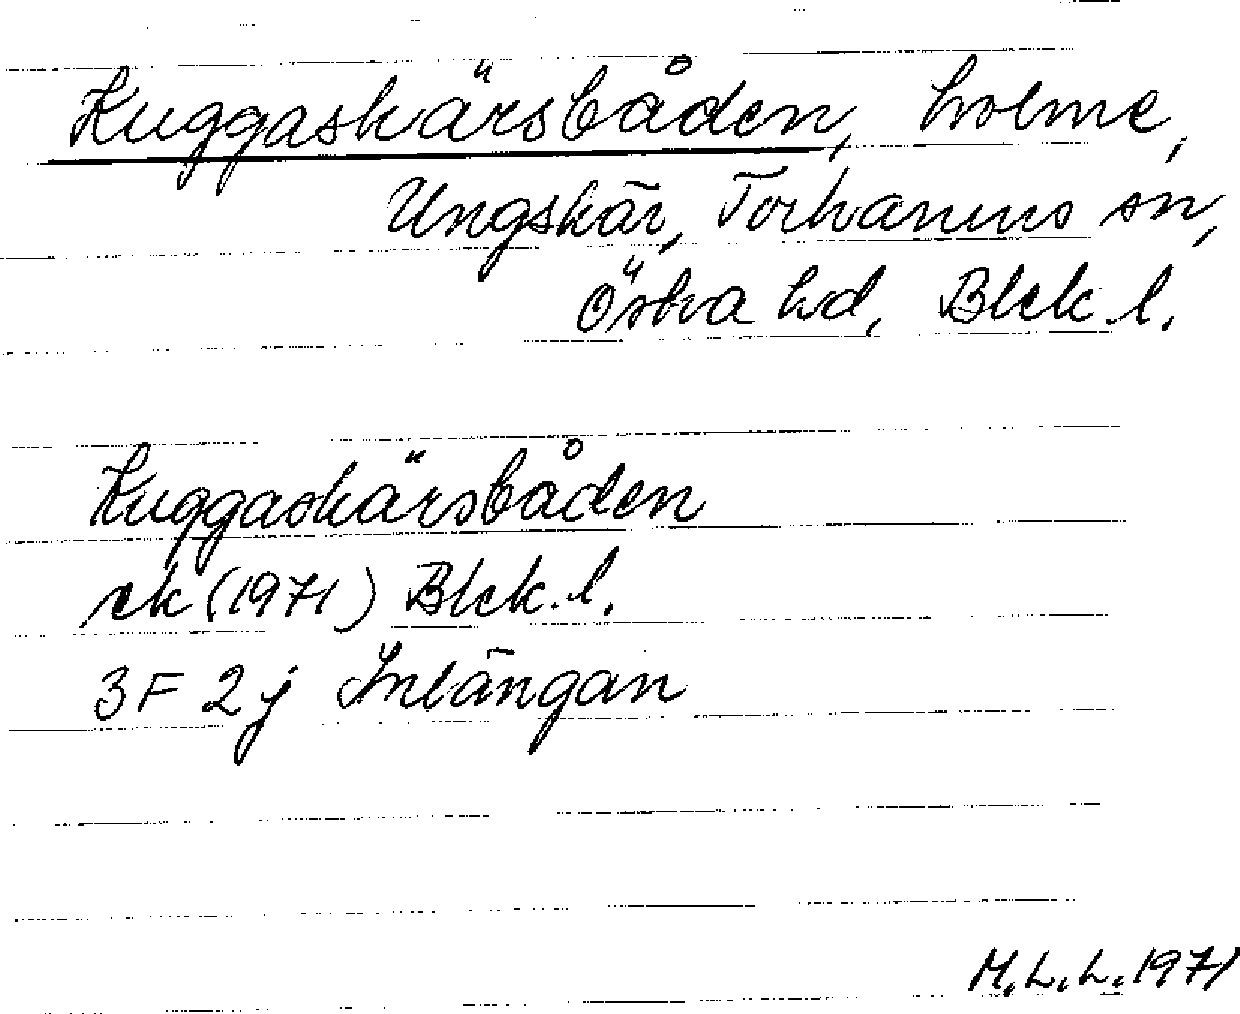 Kuggaskärsbåden, holme,
Ungskär, Torhamns sn,
Östra hd, Blek l.
Kuggaskärsbåden
ek (1971) Blek. l.
3 F 2 j Inlängan
M.L.L. 1971